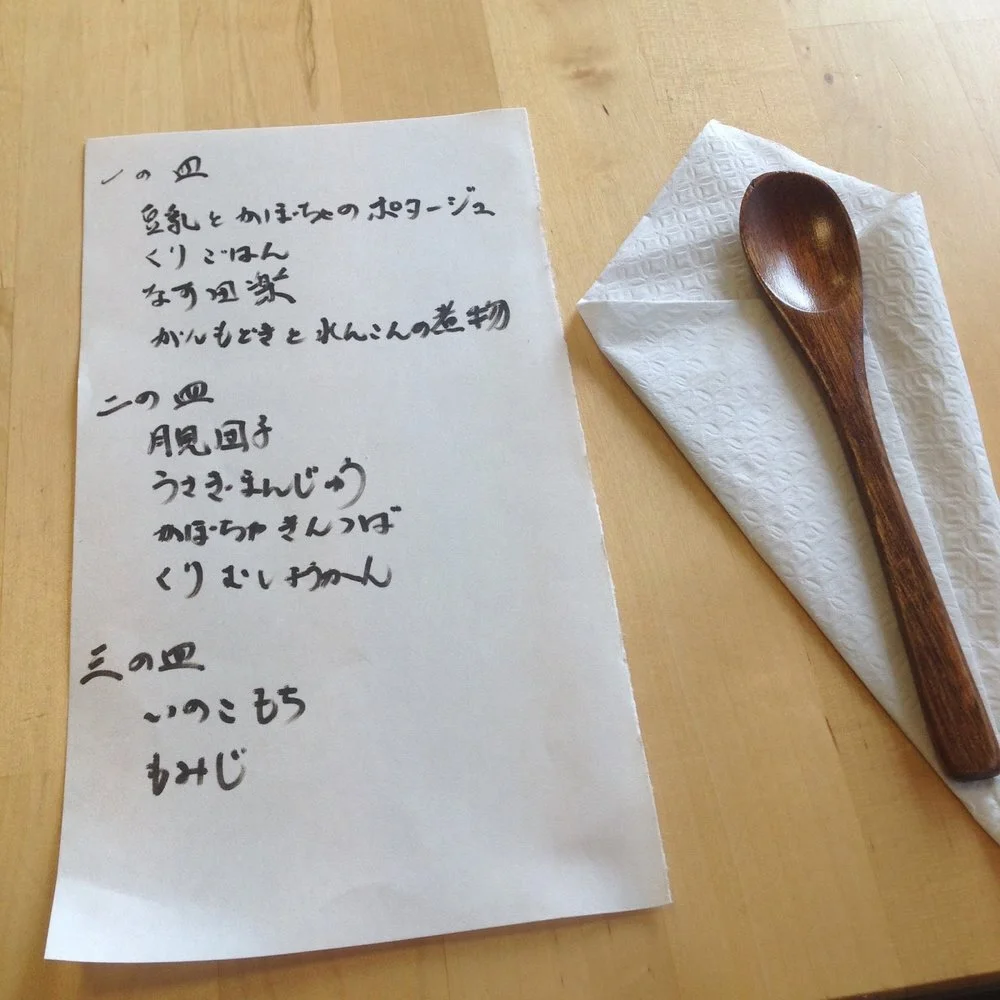 一の皿
豆乳とかぼちゃのポタージュ
くりごはん
なす田楽
がんもどきとれんこんの煮物
二の皿
月見団子
うさぎまんじゅう
かぼちゃきんつば
くりむしようかん
三の皿
いのこもち
もみじ